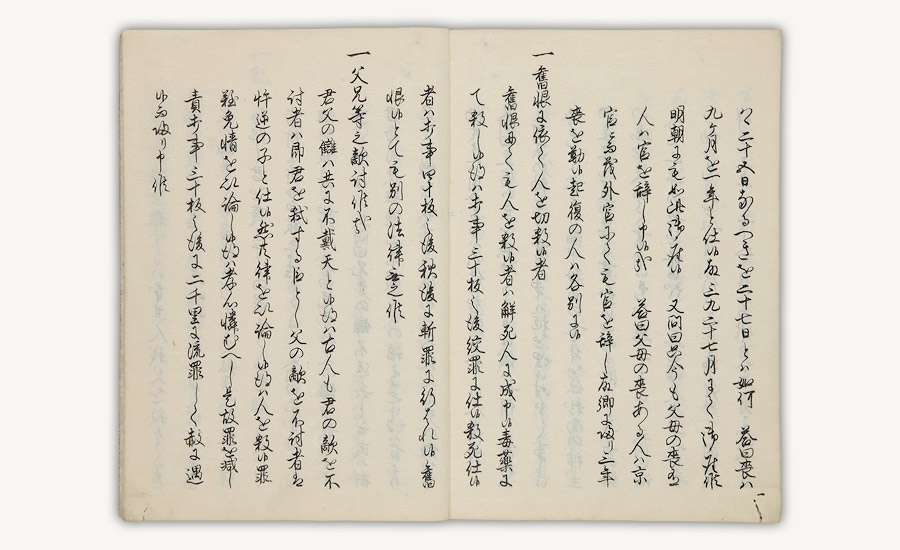 は二十五日なるつきを二十七日とは如何 答曰喪は
九ヶ月を一年と仕候故三九二十七月にて御座候
明朝にも如此御座候 又問曰只今も父母の喪に
人は官を辞し申候哉 答曰父母の喪ある人は京
官る茂外官にても官を辞し故郷に帰り三年
喪を勤候起復の人は各別に候
一舊恨に依て人を切殺候者
舊恨ありて人を殺候者は解死人に成申候毒薬に
て殺し候ものは打事三十板之後絞罪に仕候殺死仕候
者は打事四十板之後秋後に斬罪に行はれ候舊
恨候とても別の法律無之候
一父兄等之敵討候哉
君父の讎は共に不戴天と候得は古人も君の敵を不
討者は即君を弑する臣とし父の敵を不討者は
忤逆の子と仕候然共律を以論し候得は人を殺候罪
難免情を以論し候得は孝心憐むへし是故罪を減し
責打事三十板之後に二千里に流罪して赦に遇
候而帰り申候